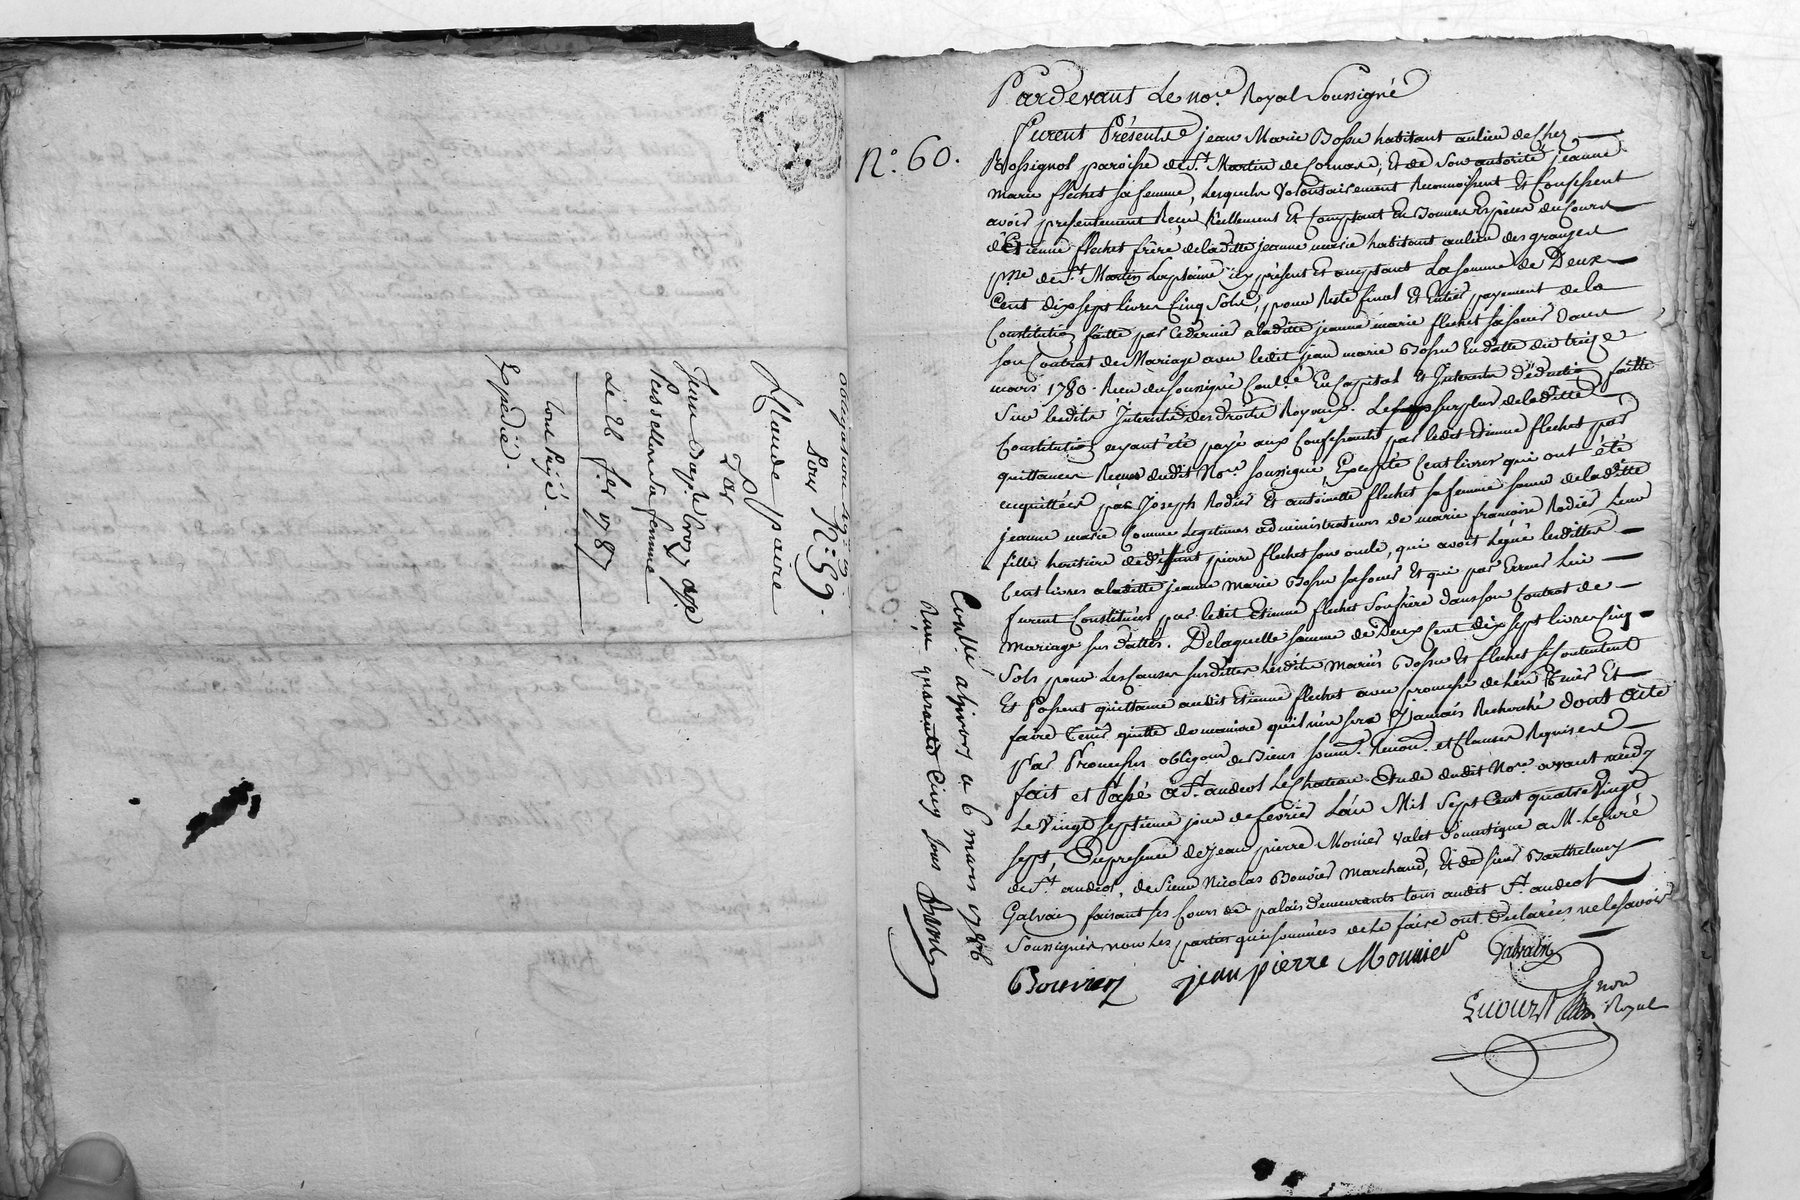 obligation
Pour N.° 59.
Claude paire
Par
Jean Bapt.
sa femme
Le 26 f.er 1787
tout Payé.
Expédié.
N.° 60.
Pardevant Le no.re Royal Soussigné
furent Présents jean Marie Bossu habitant au lieu de chez
Rossignol paroisse de S.t Martin de Cornas, Et de Son autorité jeanne
marie flechet sa femme, lesquels volontairement Reconnoissent Et Confessent
avoir presentement Receu Reellement Et Comptant En Bonnes Espèces du Cours
d'Etienne flechet frère de laditte jeanne marie habitant au lieu des granges
p.sse de S.t Martin Laplaine icy présent Et acceptant La somme de Deux
Cent dix sept livres Cinq Sols, pour Reste final Et Entier payement de la
Constitution faitte par Cedernier a laditte jeanne marie flechet sa soeur dans
son Contrat de Mariage avec ledit jean marie Bossu En datte du treize
mars 1780. Receu du soussigné Con.lé En Capital Et Interets déduction faitte
Sur lesdits Interets des droits Royaux. Le surplus de laditte
Constitution ayant été payé aux Confessants par ledit Etienne flechet par
quittances Receues dudit No.re soussigné Excepté Cent livres qui ont été
acquittées par Joseph Rodier Et antoinette flechet sa femme soeur de laditte
jeanne marie Comme Legitimes administrateurs de marie françoise Rodier Leur
fille heritiere de deffunt pierre flechet son oncle, qui avoit Légué lesdittes
Cent livres a laditte jeanne marie Bossu sa soeur Et qui par Erreur Lui
furent Constituées par ledit Etienne flechet Son frère dans son Contrat de
Mariage sus datté. De laquelle somme de Deux Cent dix sept livres Cinq
Sols pour les Causes susdittes lesdits mariés Bossu Et flechet se Contentent
Et Passent quittance audit Etienne flechet avec promesse de l'en tenir Et
faire tenir quitte de maniere qu'il n'en sera jamais Recherché dont acte
Par Promesses oblig.on de Biens soum.s Renon.s et Clauses Requises
fait et Passé à S.t andeol Le Chateau Etude dudit No.re avant midy
Le Vingt septieme jour de fevrier L'an Mil Sept Cent quatre Vingt
sept, En presence de jean pierre Monier valet domestique a M. Le Curé
de S.t andeol, de Sieur Nicolas Bouvier Marchand, Et de sieur Barthelemy
Galvain faisant ses Cours de palais demeurants tous audit S.t andeol
Soussignés non Les parties qui sommées de le faire ont déclarées ne le savoir
Bouvier jean pierre Mounier Galvain
not.re Royal
Con.lé a givors le 6 mars 1787
Reçu quarante Cinq sous